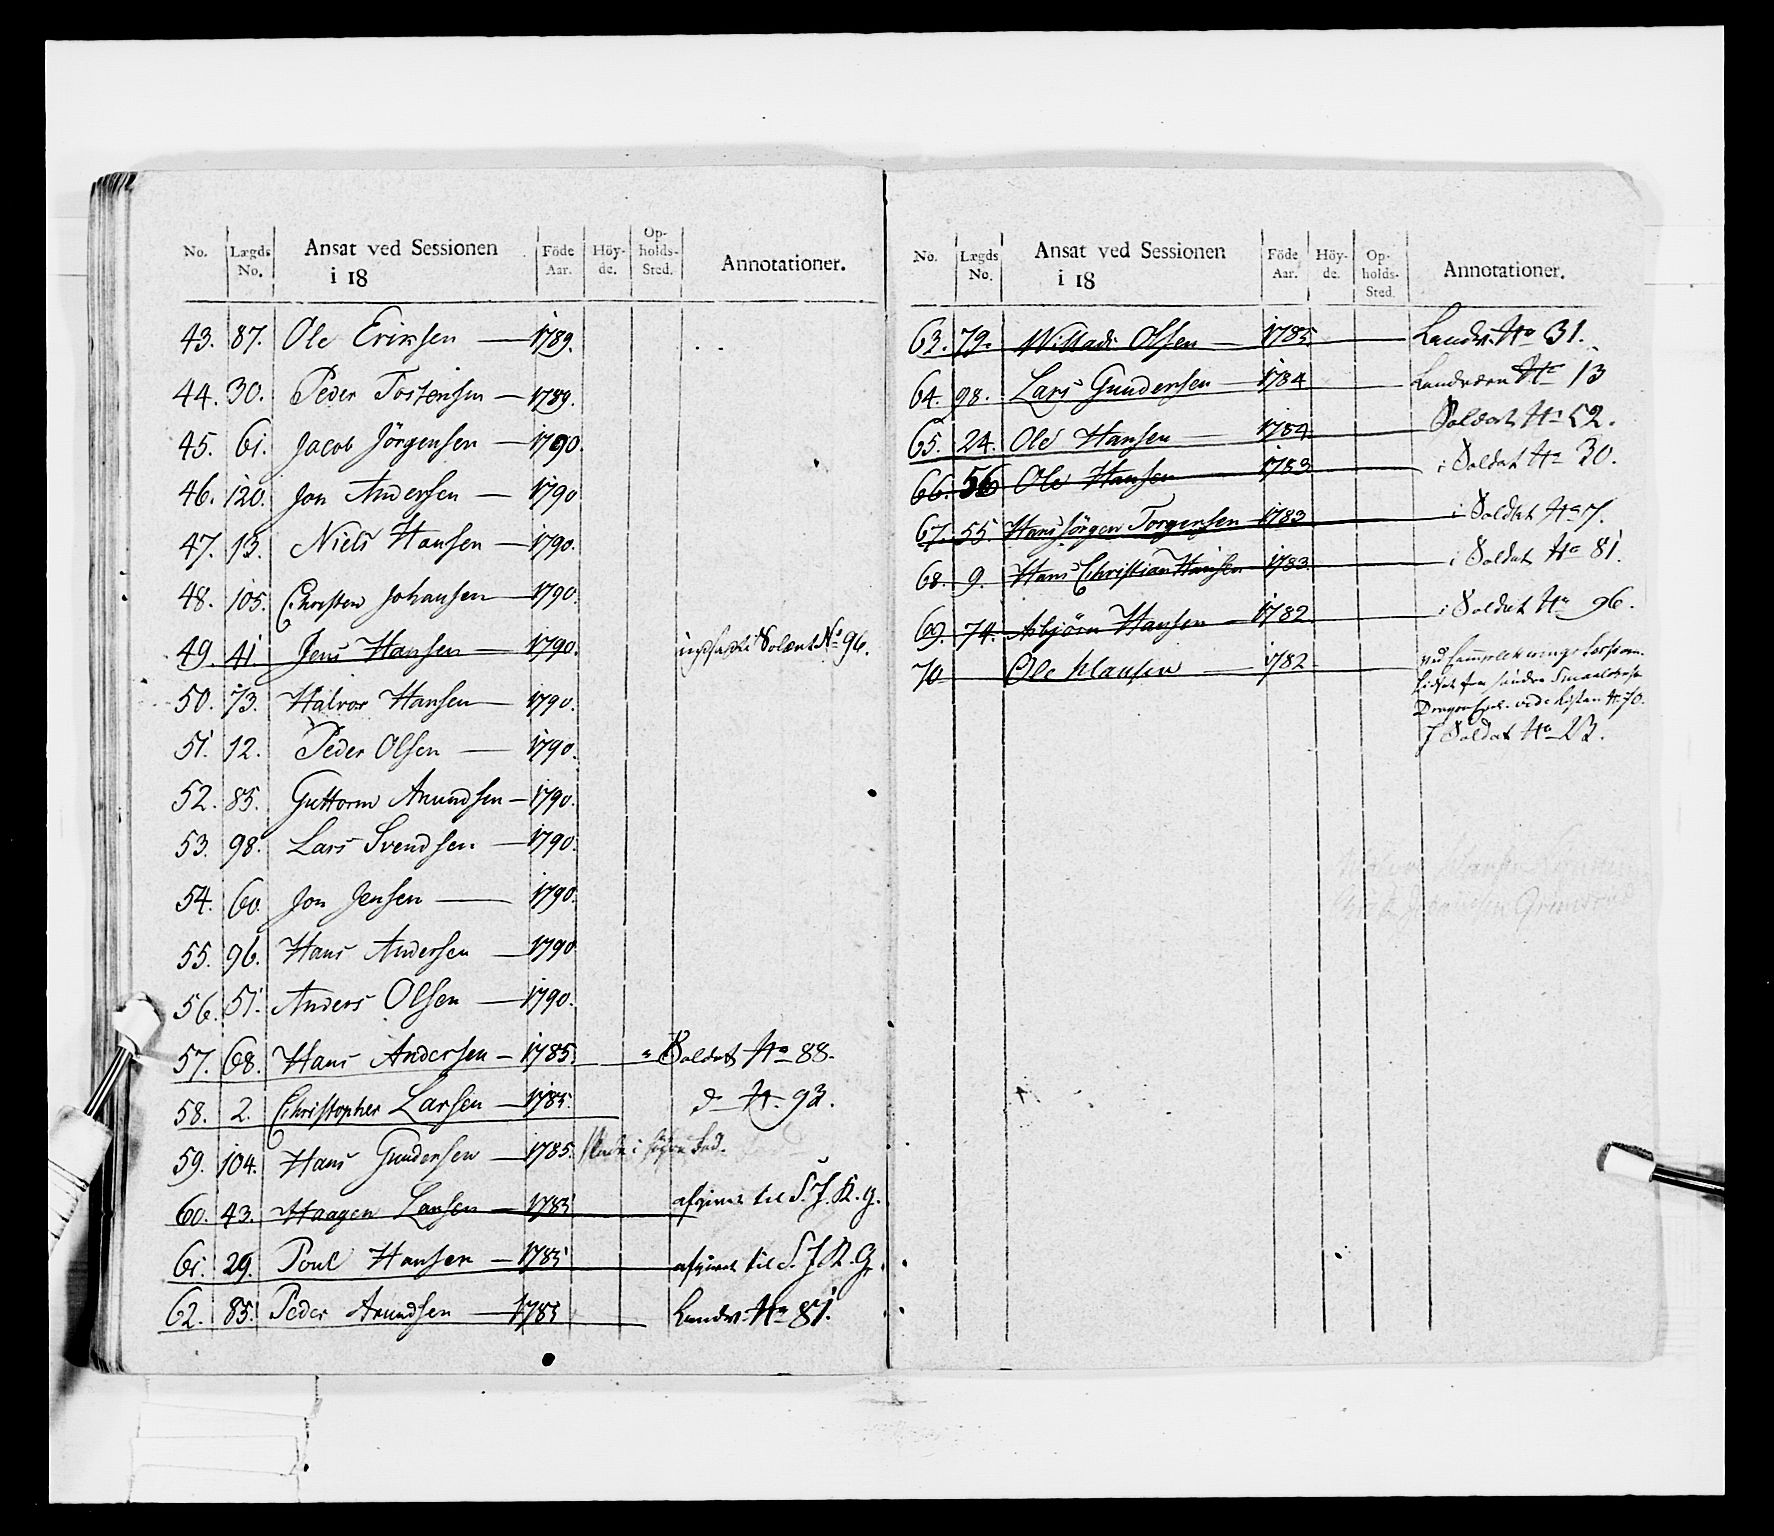 No. Lægds No. Ansat ved Sessionen i 18 Föde Aar. Höy-de. Op-holds-Sted. Annotationer.
43. 87. Ole Erichsen — 1789.
44. 30. Peder Tostensen — 1789.
45. 61. Jacob Jörgensen — 1790.
46. 120. Jon Andersen — 1790
47. 13. Niels Hansen — 1790.
48. 105. Christen Johansen — 1790.
49. 41. Jens Hansen — 1790. indsadt i Soldat No 96.
50. 73. Halvor Hansen — 1790.
51. 12. Peder Olsen — 1790.
52. 85. Guttorm Amundsen — 1790.
53. 98. Lars Svendsen — 1790.
54. 60. Jon Jensen — 1790.
55. 96. Hans Andersen — 1790
56. 51. Anders Olsen — 1790.
57. 68. Hans Andersen — 1785. Soldat No 88.
58. 2. Christopher Larsen — 1785. d— No 93.
59. 104. Hans Gundersen — 1785.
60. 43. Haagen Larsen — 1785 afgivet til S. J. R. G.
61. 29. Poul Hansen — 1785 afgivet til S. J. R. G.
62. 85. Peder Amundsen — 1785 Landv. No 81.
No. Lægds No. Ansat ved Sessionen i 18 Föde Aar. Höy-de. Op-holds-Sted. Annotationer.
63. 79. Olsen — 1785. Landv. No 31.
64. 98. Lars Gundersen — 1784 Landværn No 13
65. 24. Ole Hansen — 1784. Soldat No 52.
66. 56 Ole Hansen 1783 i Soldat No 30.
67. 55. Hans Jörgen Torgersen — 1783 i Soldat No 7.
68. 9. Hans Christian Hansen — 1783. i Soldat No 81
69. 74. Asbjörn Hansen — 1782. i Soldat No 96.
70 Ole Clausen — 1782
Listen No 70.
I Soldat No 23.